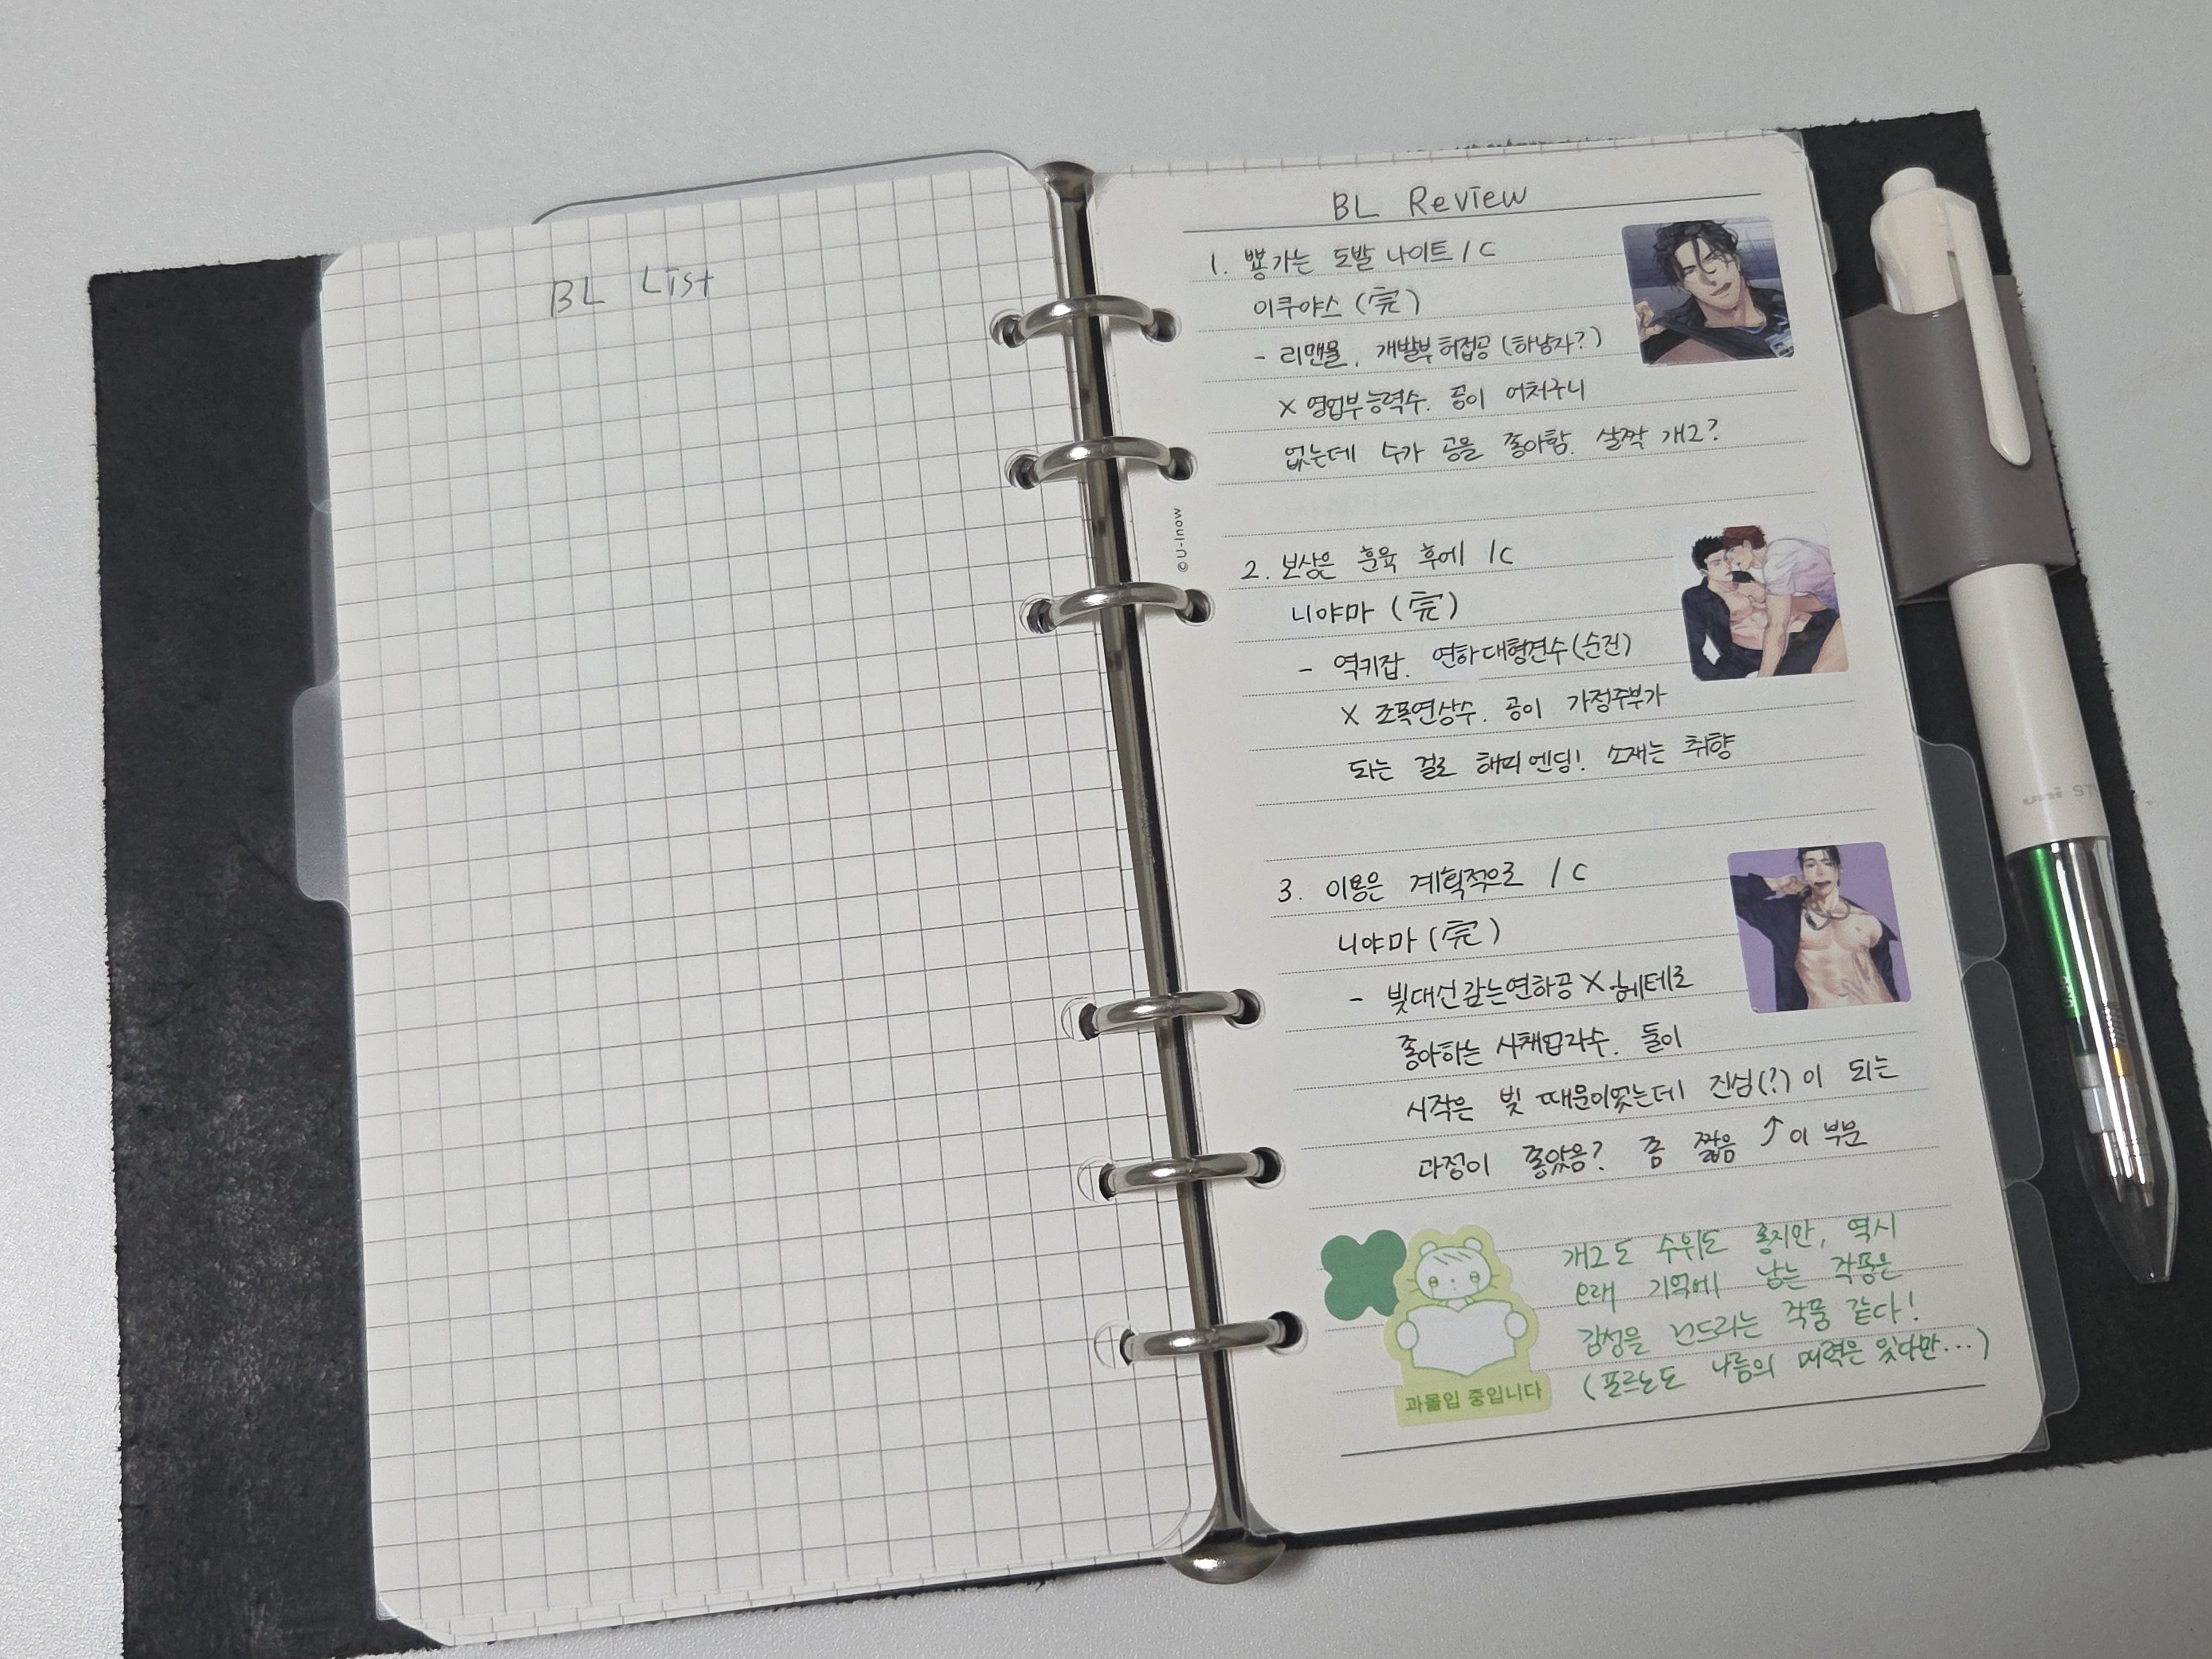 BL List
BL Review
1. 뿅가는 도발 나이트 / C
이쿠야스 (完)
- 리맨물. 개발부허접공 (하남자?)
X 영업부능력수. 공이 어처구니
없는데 수가 공을 좋아함. 살짝 개그?
2. 보상은 훈육 후에 / C
니야마 (完)
- 역키잡. 연하대형견수(순진)
X 조폭연상수. 공이 가정주부가
되는 걸로 해피엔딩! 소재는 취향
3. 이용은 계획적으로 / C
니야마 (完)
- 빚대신갚는연하공 X 헤테로
좋아하는 사채업자수. 둘이
시작은 빚 때문이었는데 진심(?)이 되는
과정이 좋았음? 좀 짧음 ↑이 부분
개그도 수위도 좋지만, 역시
오래 기억에 남는 작품은
감성을 건드리는 작품 같다!
(포르노도 나름의 매력은 있다만...)
과몰입 중입니다
© U-Inow
uni ST